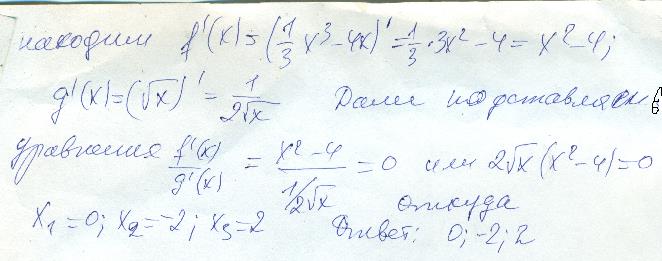 находим f'(x)=(1/3 x³-4x)'=1/3·3x²-4=x²-4;
g'(x)=(√x)'=1/(2√x) Далее подставляем в
уравнения f'(x)/g'(x) = (x²-4)/(1/2√x) =0 или 2√x(x²-4)=0
откуда
x₁=0; x₂=-2; x₃=2 Ответ: 0;-2;2